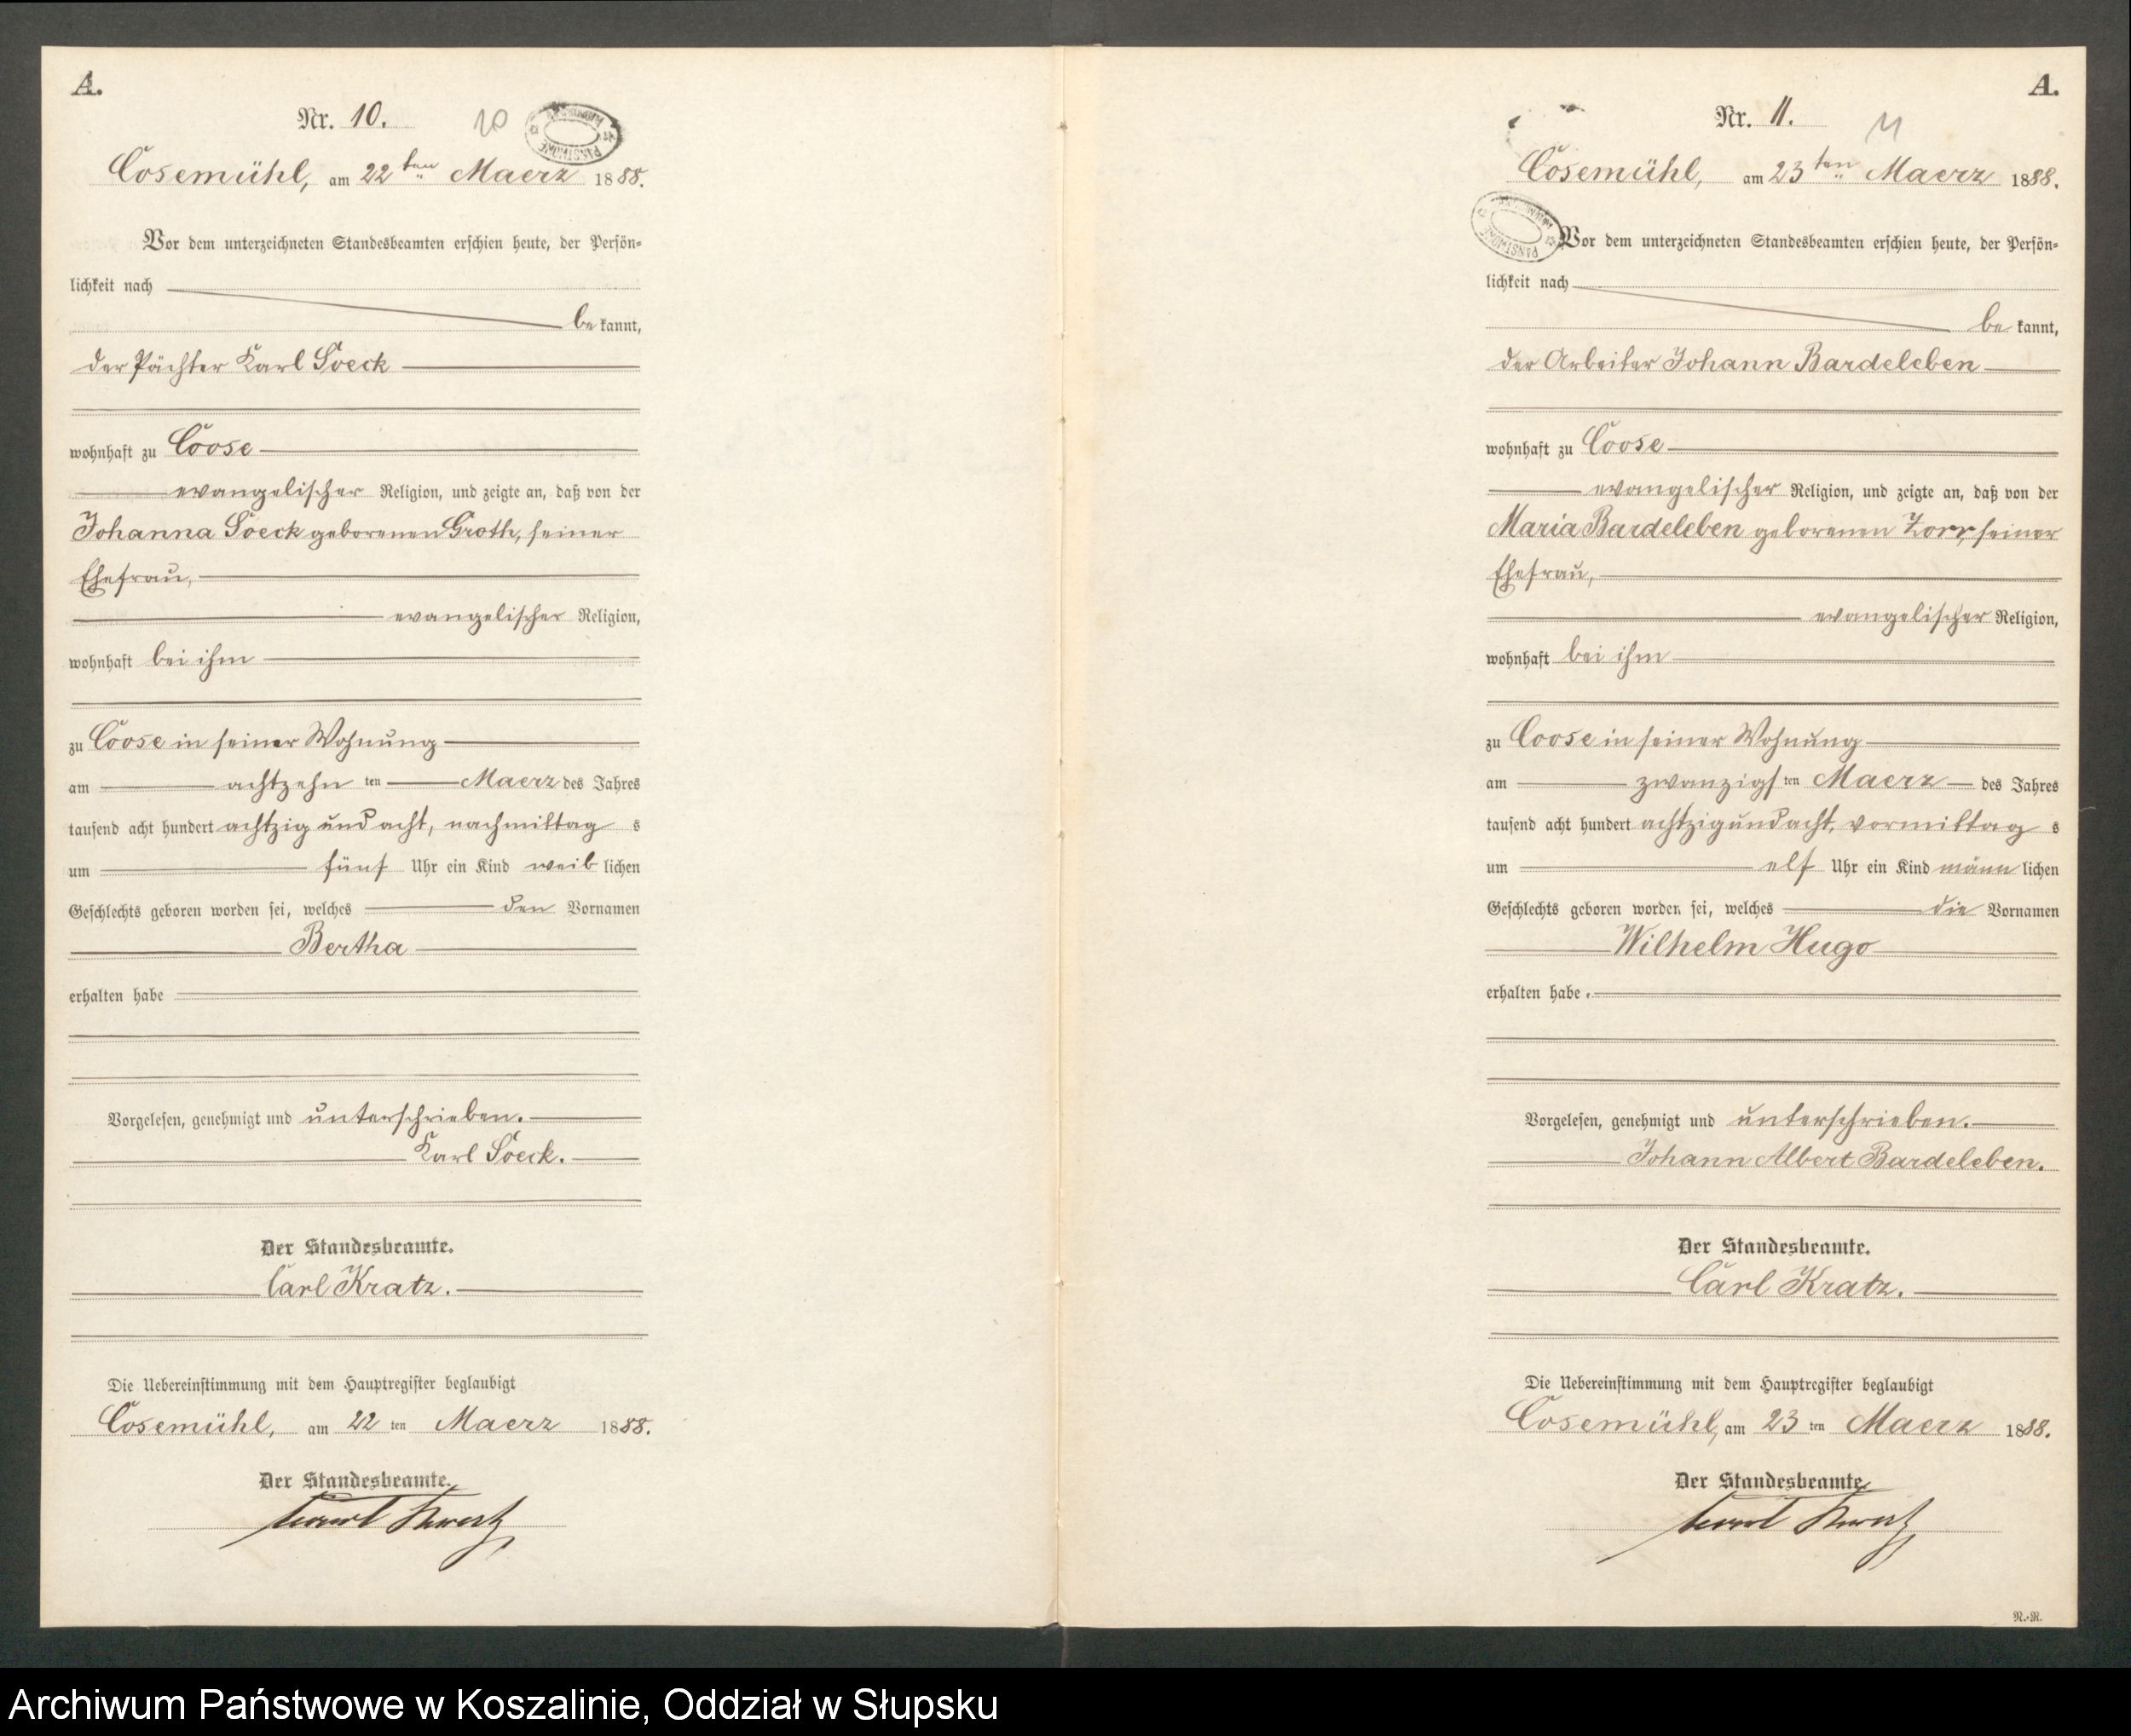 A.
Nr. 10.
10
Cosemühl, am 22ten Maerz 1888.
Vor dem unterzeichneten Standesbeamten erschien heute, der Persön=
lichkeit nach
be kannt,
der Pächter Karl Soeck
wohnhaft zu Coose
evangelischer Religion, und zeigte an, daß von der
Johanna Soeck geborenen Groth, seiner
Ehefrau,
evangelischer Religion,
wohnhaft bei ihm
zu Coose in seiner Wohnung
am achtzehn ten Maerz des Jahres
tausend acht hundert achtzig und acht, nachmittag s
um fünf Uhr ein Kind weib lichen
Geschlechts geboren worden sei, welches den Vornamen
Bertha
erhalten habe
Vorgelesen, genehmigt und unterschrieben.
Karl Soeck.
Der Standesbeamte.
Carl Kratz.
Die Uebereinstimmung mit dem Hauptregister beglaubigt
Cosemühl, am 22 ten Maerz 1888.
Der Standesbeamte.
Carl Kratz
A.
Nr. 11.
11
Cosemühl, am 23ten Maerz 1888.
Vor dem unterzeichneten Standesbeamten erschien heute, der Persön=
lichkeit nach
be kannt,
der Arbeiter Johann Bardeleben
wohnhaft zu Coose
evangelischer Religion, und zeigte an, daß von der
Maria Bardeleben geborenen Zorr, seiner
Ehefrau,
evangelischer Religion,
wohnhaft bei ihm
zu Coose in seiner Wohnung
am zwanzigs ten Maerz des Jahres
tausend acht hundert achtzig und acht, vormittag s
um elf Uhr ein Kind männ lichen
Geschlechts geboren worden sei, welches die Vornamen
Wilhelm Hugo
erhalten habe.
Vorgelesen, genehmigt und unterschrieben.
Johann Albert Bardeleben.
Der Standesbeamte.
Carl Kratz.
Die Uebereinstimmung mit dem Hauptregister beglaubigt
Cosemühl, am 23 ten Maerz 1888.
Der Standesbeamte.
Carl Kratz
R.-R.
Archiwum Państwowe w Koszalinie, Oddział w Słupsku